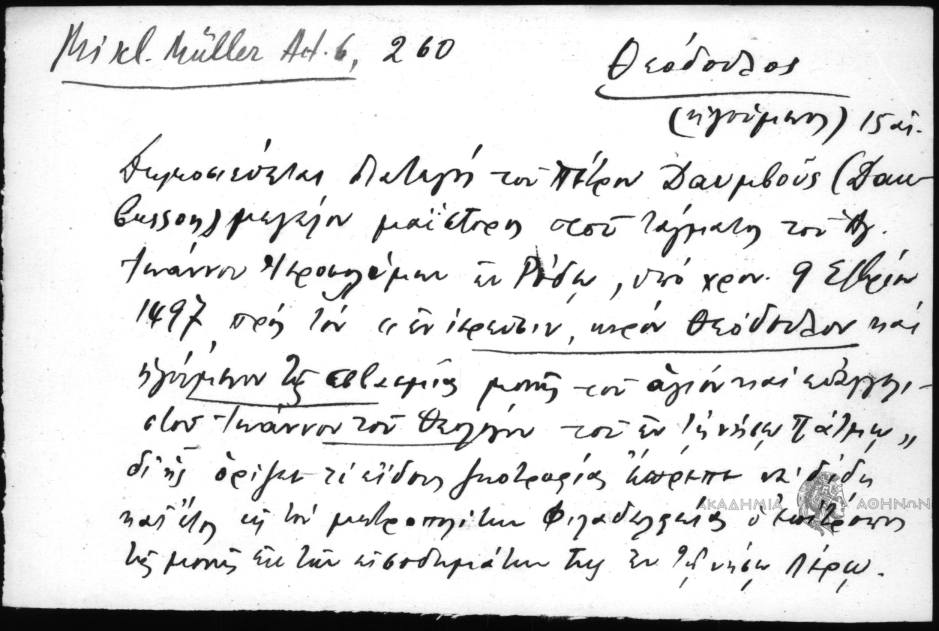 Mikl. Müller Act. 6, 260
Θεόδουλος
(ηγούμενος) 15 αἰ.
Δημοσιεύεται διαταγή τοῦ Πέτρου Δαυμβούς (Dau-
bussons) μεγάλου μαΐστορος τοῦ τάγματος τοῦ Ἁγ.
Ἰωάννου Ἱεροσολύμων ἐν Ρόδῳ, ὑπό χρον. 9
1497 πρός τόν „ἐν ἱερεῦσιν, κυρόν Θεόδουλον καί
ἡγούμενον τῆς σεβασμίας μονῆς τοῦ ἁγίου καί εὐαγγελι-
στοῦ Ἰωάννου τοῦ Θεολόγου τοῦ ἐν τῇ νήσῳ Πάτμῳ„
δι' ἧς ὁρίζει τί εἴδους ἔπρεπε νά δίδῃ
κατ' ἔτος εἰς τόν μητροπολίτην Φιλαδελφείας ὁ ἐπίτροπος
τῆς μονῆς ἐκ τῶν εἰσοδημάτων της ἐν τῇ νήσῳ Λέρῳ.
ΑΚΑΔΗΜΙΑ ΑΘΗΝΩΝ